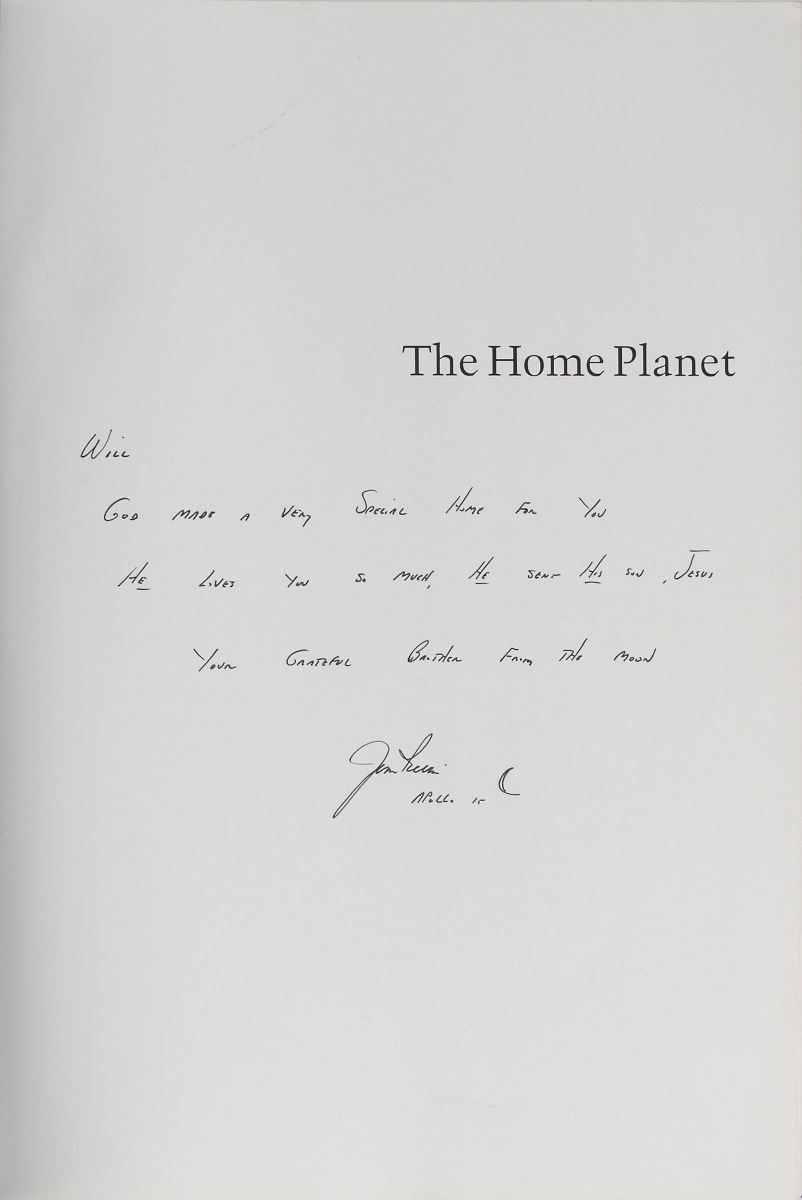 The Home Planet
Will
God made a very Special Home for You
He Loves You so much, He sent His son, Jesus
Your Grateful Brother From the Moon
Jim Irwin
Apollo 15